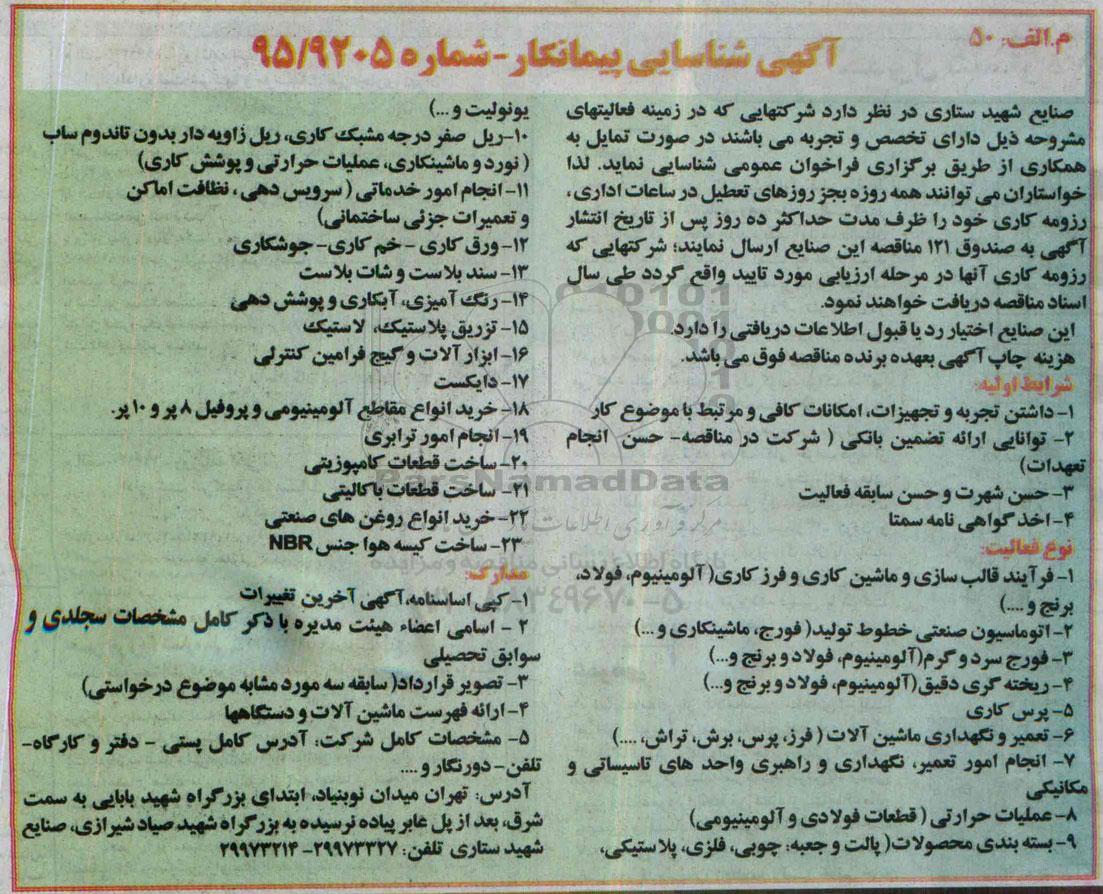 م.الف: ۵۰
آگهی شناسایی پیمانکار - شماره ۹۵/۹۲۰۵
صنایع شهید ستاری در نظر دارد شرکتهایی که در زمینه فعالیتهای
مشروحه ذیل دارای تخصص و تجربه می باشند در صورت تمایل به
همکاری از طریق برگزاری فراخوان عمومی شناسایی نماید. لذا
خواستاران می توانند همه روزه بجز روزهای تعطیل در ساعات اداری،
رزومه کاری خود را ظرف مدت حداکثر ده روز پس از تاریخ انتشار
آگهی به صندوق ۱۲۱ مناقصه این صنایع ارسال نمایند؛ شرکتهایی که
رزومه کاری آنها در مرحله ارزیابی مورد تایید واقع گردد طی سال
اسناد مناقصه دریافت خواهند نمود.
این صنایع اختیار رد یا قبول اطلاعات دریافتی را دارد.
هزینه چاپ آگهی بعهده برنده مناقصه فوق می باشد.
شرایط اولیه:
۱- داشتن تجربه و تجهیزات، امکانات کافی و مرتبط با موضوع کار
۲- توانایی ارائه تضمین بانکی ( شرکت در مناقصه- حسن انجام
تعهدات)
۳- حسن شهرت و حسن سابقه فعالیت
۴- اخذ گواهی نامه سمتا
نوع فعالیت:
۱- فرآیند قالب سازی و ماشین کاری و فرز کاری( آلومینیوم، فولاد،
برنج و ....)
۲- اتوماسیون صنعتی خطوط تولید( فورج، ماشینکاری و ...)
۳- فورج سرد و گرم(آلومینیوم، فولاد و برنج و...)
۴- ریخته گری دقیق(آلومینیوم، فولاد و برنج و...)
۵- پرس کاری
۶- تعمیر و نگهداری ماشین آلات ( فرز، پرس، برش، تراش، ....)
۷- انجام امور تعمیر، نگهداری و راهبری واحد های تاسیساتی و
مکانیکی
۸- عملیات حرارتی ( قطعات فولادی و آلومینیومی)
۹- بسته بندی محصولات( پالت و جعبه: چوبی، فلزی، پلاستیکی،
یونولیت و ...)
۱۰-ریل صفر درجه مشبک کاری، ریل زاویه دار بدون تاندوم ساب
( نورد و ماشینکاری، عملیات حرارتی و پوشش کاری)
۱۱- انجام امور خدماتی ( سرویس دهی ، نظافت اماکن
و تعمیرات جزئی ساختمانی)
۱۲- ورق کاری - خم کاری- جوشکاری
۱۳- سند بلاست و شات بلاست
۱۴- رنگ آمیزی، آبکاری و پوشش دهی
۱۵- تزریق پلاستیک، لاستیک
۱۶- ابزار آلات و گیج فرامین کنترلی
۱۷- دایکست
۱۸- خرید انواع مقاطع آلومینیومی و پروفیل ۸ پر و ۱۰ پر.
۱۹- انجام امور ترابری
۲۰- ساخت قطعات کامپوزیتی
۲۱- ساخت قطعات باکالیتی
۲۲- خرید انواع روغن های صنعتی
۲۳- ساخت کیسه هوا جنس NBR
مدارک:
۱- کپی اساسنامه، آگهی آخرین تغییرات
۲ - اسامی اعضاء هیئت مدیره با ذکر کامل مشخصات سجلدی و
سوابق تحصیلی
۳- تصویر قرارداد( سابقه سه مورد مشابه موضوع درخواستی)
۴- ارائه فهرست ماشین آلات و دستگاهها
۵- مشخصات کامل شرکت: آدرس کامل پستی - دفتر و کارگاه-
تلفن- دورنگار و ....
آدرس: تهران میدان نوبنیاد، ابتدای بزرگراه شهید بابایی به سمت
شرق، بعد از پل عابر پیاده نرسیده به بزرگراه شهید صیاد شیرازی، صنایع
شهید ستاری تلفن: ۲۹۹۷۳۳۲۷- ۲۹۹۷۳۲۱۴
ParsNamadData